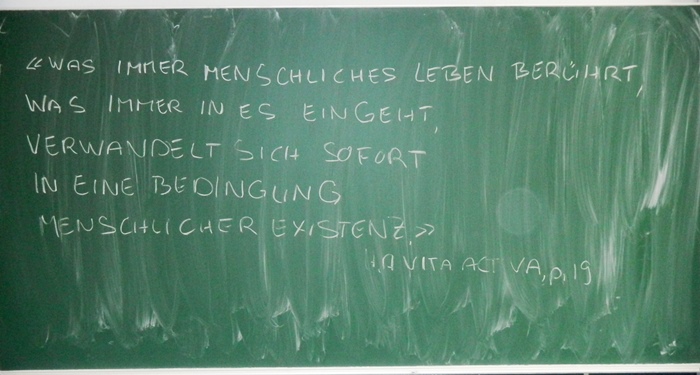 «WAS IMMER MENSCHLICHES LEBEN BERÜHRT,
WAS IMMER IN ES EINGEHT,
VERWANDELT SICH SOFORT
IN EINE BEDINGUNG
MENSCHLICHER EXISTENZ.»
H.A VITA ACTIVA, p. 19